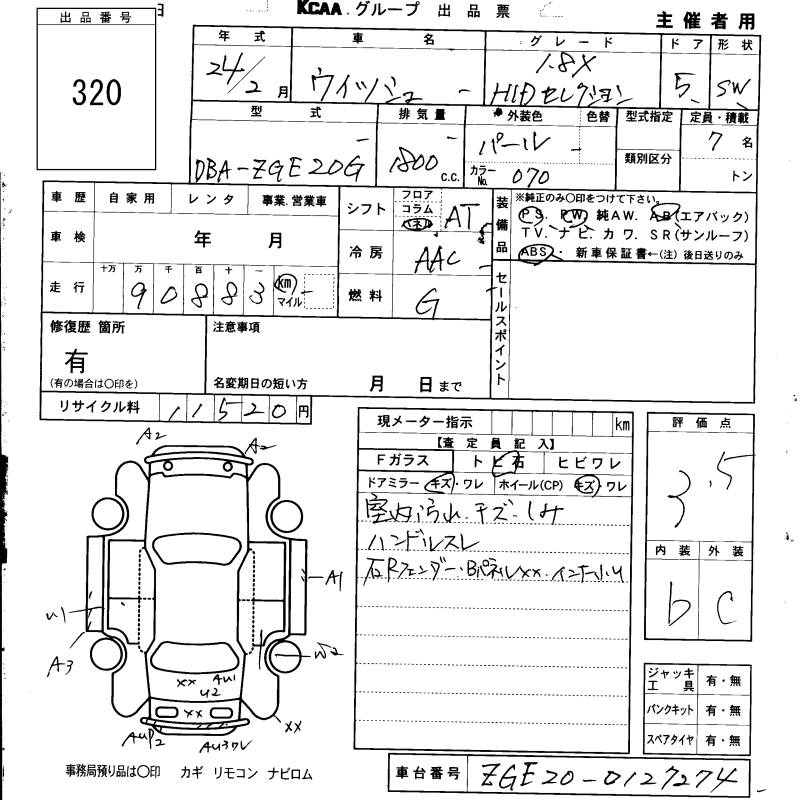 日 KCAA グループ 出品票
主催者用
出品番号
320
年式 車名 グレード ドア 形状
24/2月 ウィッシュ 1.8X HIDセレクション 5 SW
型式 排気量 外装色 色替 型式指定 定員・積載
DBA-ZGE20G 1800 c.c. パール 類別区分 7名
カラーNo. 070 トン
車歴 自家用 レンタ 事業.営業車
シフト フロア コラム パネル AT
装備品 ※純正のみ○印をつけて下さい。
PS. PW. 純AW. AB(エアバック)
TV. ナビ. カワ. SR(サンルーフ)
ABS. 新車保証書←(注)後日送りのみ
車検 年 月
冷房 AAC
走行 十万 万 千 百 十 一
90883 km マイル
燃料 G
セールスポイント
修復歴 箇所 注意事項
有
(有の場合は○印を) 名変期日の短い方 月 日まで
リサイクル料 11520円
現メーター指示 km
【査定員記入】
Fガラス トビ石 ヒビワレ
ドアミラー キズ・ワレ ホイール(CP) キズ・ワレ
室内汚れ.キズ.しみ
ハンドルスレ
右Rフェンダー.Bパネルxx.インナー小U
評価点
3.5
内装 外装
b C
A2 A2
A1
U1
A3
W2
xx AU1
U2
xx
xx
AUP2
AU3ワレ
ジャッキ工具 有・無
パンクキット 有・無
スペアタイヤ 有・無
事務局預り品は○印 カギ リモコン ナビロム
車台番号 ZGE20-0127274